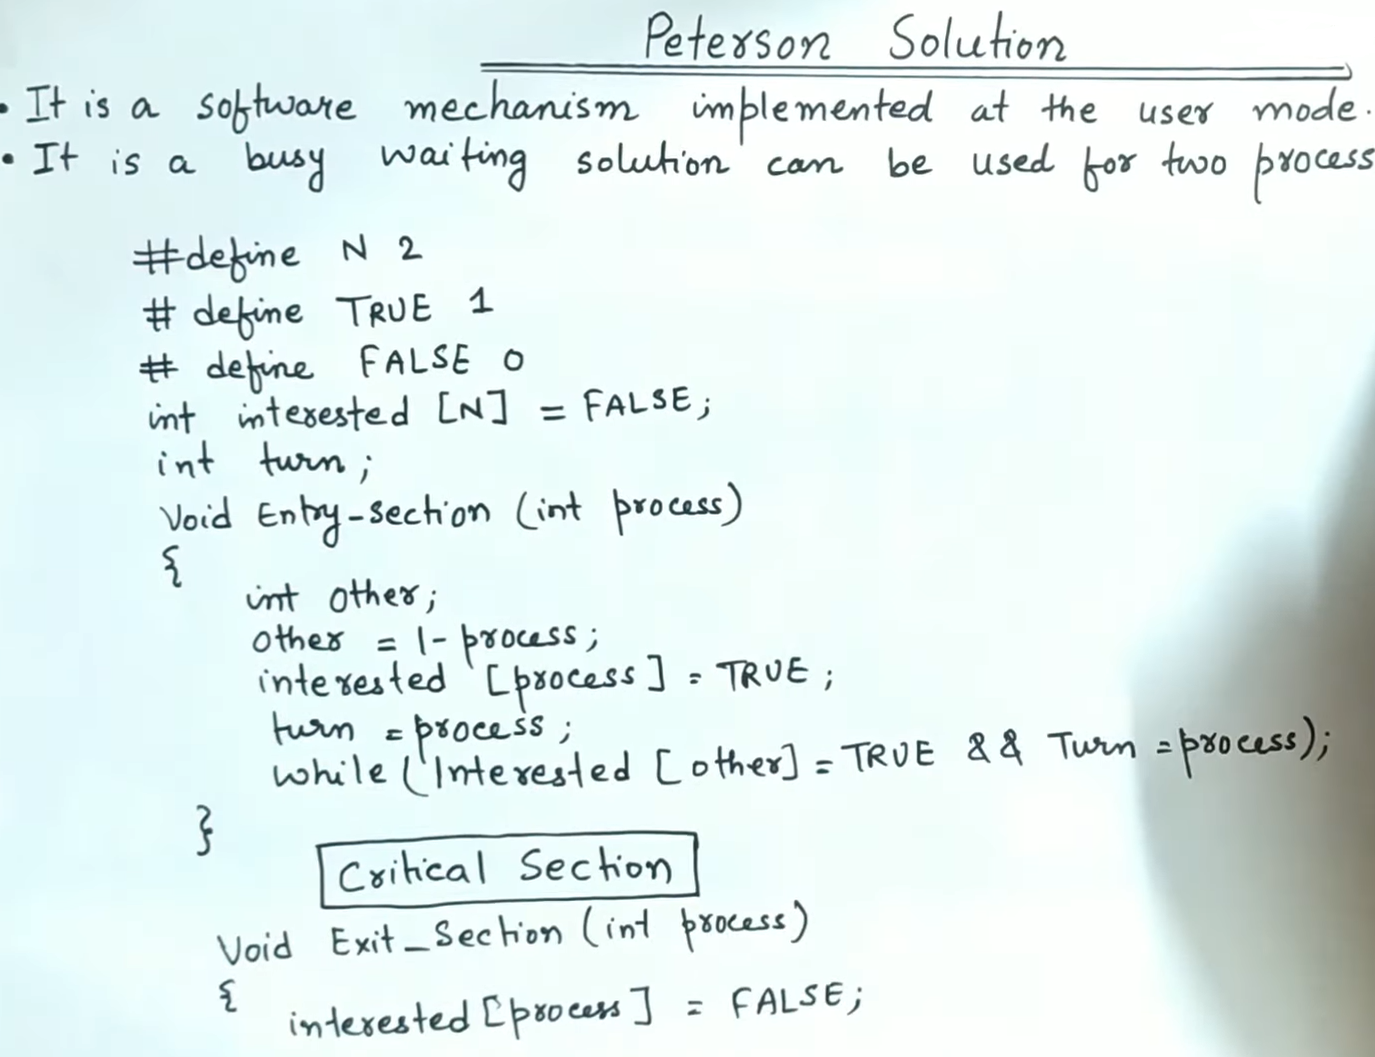 Peterson Solution
• It is a software mechanism implemented at the user mode.
• It is a busy waiting solution can be used for two process
#define N 2
# define TRUE 1
# define FALSE 0
int interested [N] = FALSE;
int turn;
Void Entry-section (int process)
{
int other;
other = 1-process;
interested [process] = TRUE;
turn = process;
while (Interested [other] = TRUE && Turn = process);
}
Critical Section
Void Exit_Section (int process)
{
interested [process] = FALSE;